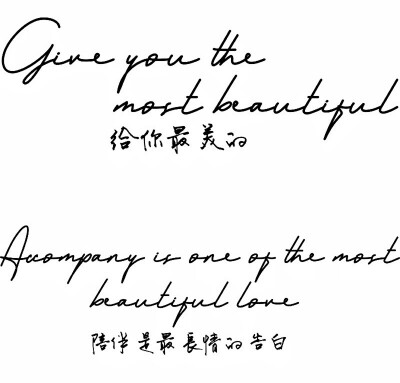 Give you the
most beautiful
给你最美的
Accompany is one of the most
beautiful love
陪伴是最長情的告白